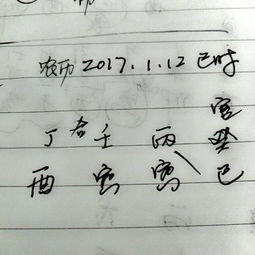 农历 2017.1.12 巳时
官
丁 合 壬 丙 癸
酉 寅 寅 巳